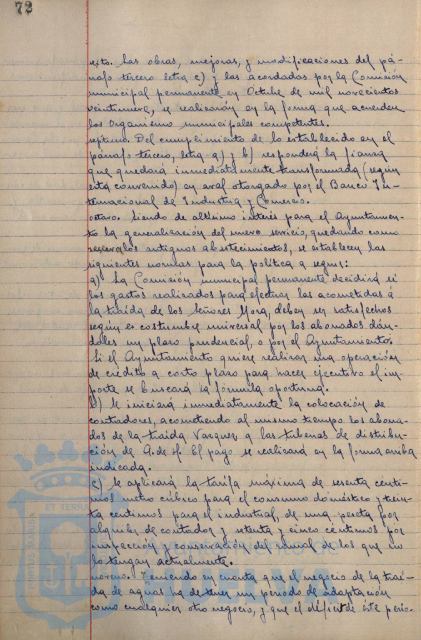 72
xito. Las obras, mejoras, y modificaciones del pá-
rrafo tercero letra c) y las acordadas por la Comisión
municipal permanente en Octubre de mil novecientos
veintinueve, se realizarán en la forma que acuerden
los Organismos municipales competentes.
septimo. Del cumplimiento de lo establecido en el
parrafo tercero, letra a) y b) responderá la fianza
que quedará inmediatamente transformada (según
está convenido) en aval otorgado por el Banco In-
ternacional de Industria y Comercio.
octavo. Siendo de altisimo interés para el Ayuntamien-
to la generalización del nuevo servicio, quedando como
reserva los antiguos abastecimientos, se establecen las
siguientes normas para la política a seguir:
a) La Comisión municipal permanente decidirá si
los gastos realizados para efectuar las acometidas á
la traida de los Señores Mora, deben ser satisfechos
según es costumbre universal por los abonados dán-
doles un plazo prudencial, o por el Ayuntamiento.
Si el Ayuntamiento quiere realizar una operación
de crédito a corto plazo para hacer ejecutivo el im-
porte se buscará la fórmula oportuna.
b) Se iniciará inmediatamente la colocación de
contadores, acometiendo al mismo tiempo los abona-
dos de la traida Vazquez a las tuberias de distribu-
ción de A. de H. El pago se realizará en la forma arriba
indicada.
c) Se aplicará la tarifa máxima de sesenta centi-
mos metro cúbico para el consumo doméstico y trein-
ta centimos para el industrial, de una peseta por
alquiler de contador y setenta y cinco centimos por
inspección y conservación del ramal de los que no
lo tengan actualmente.
noveno. Teniendo en cuenta que el negocio de la trai-
da de aguas ha de tener un periodo de adaptación
como cualquier otro negocio, y que el déficit de este perio-